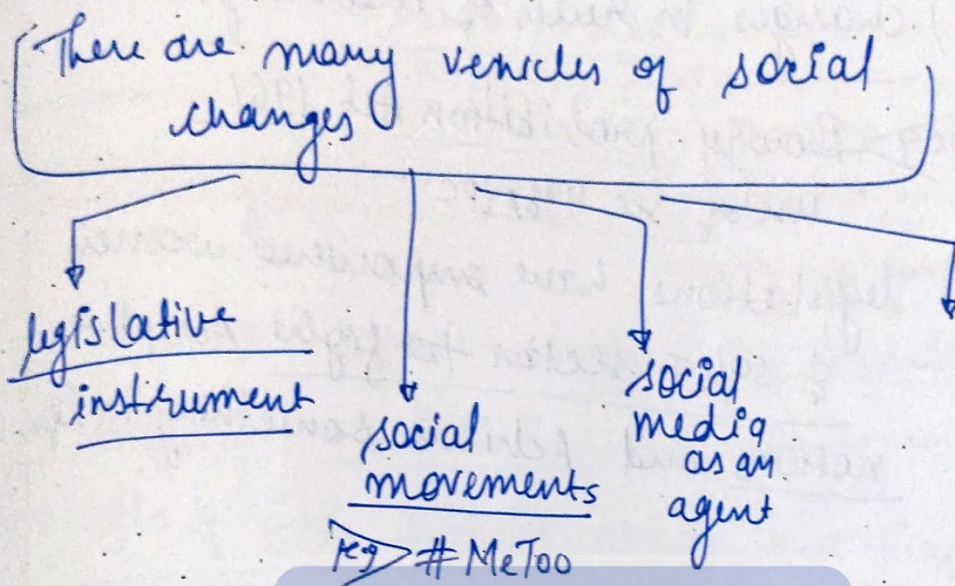 There are many vehicles of social
changes
legislative
instrument
social
movements
eg #MeToo
social
media
as an
agent